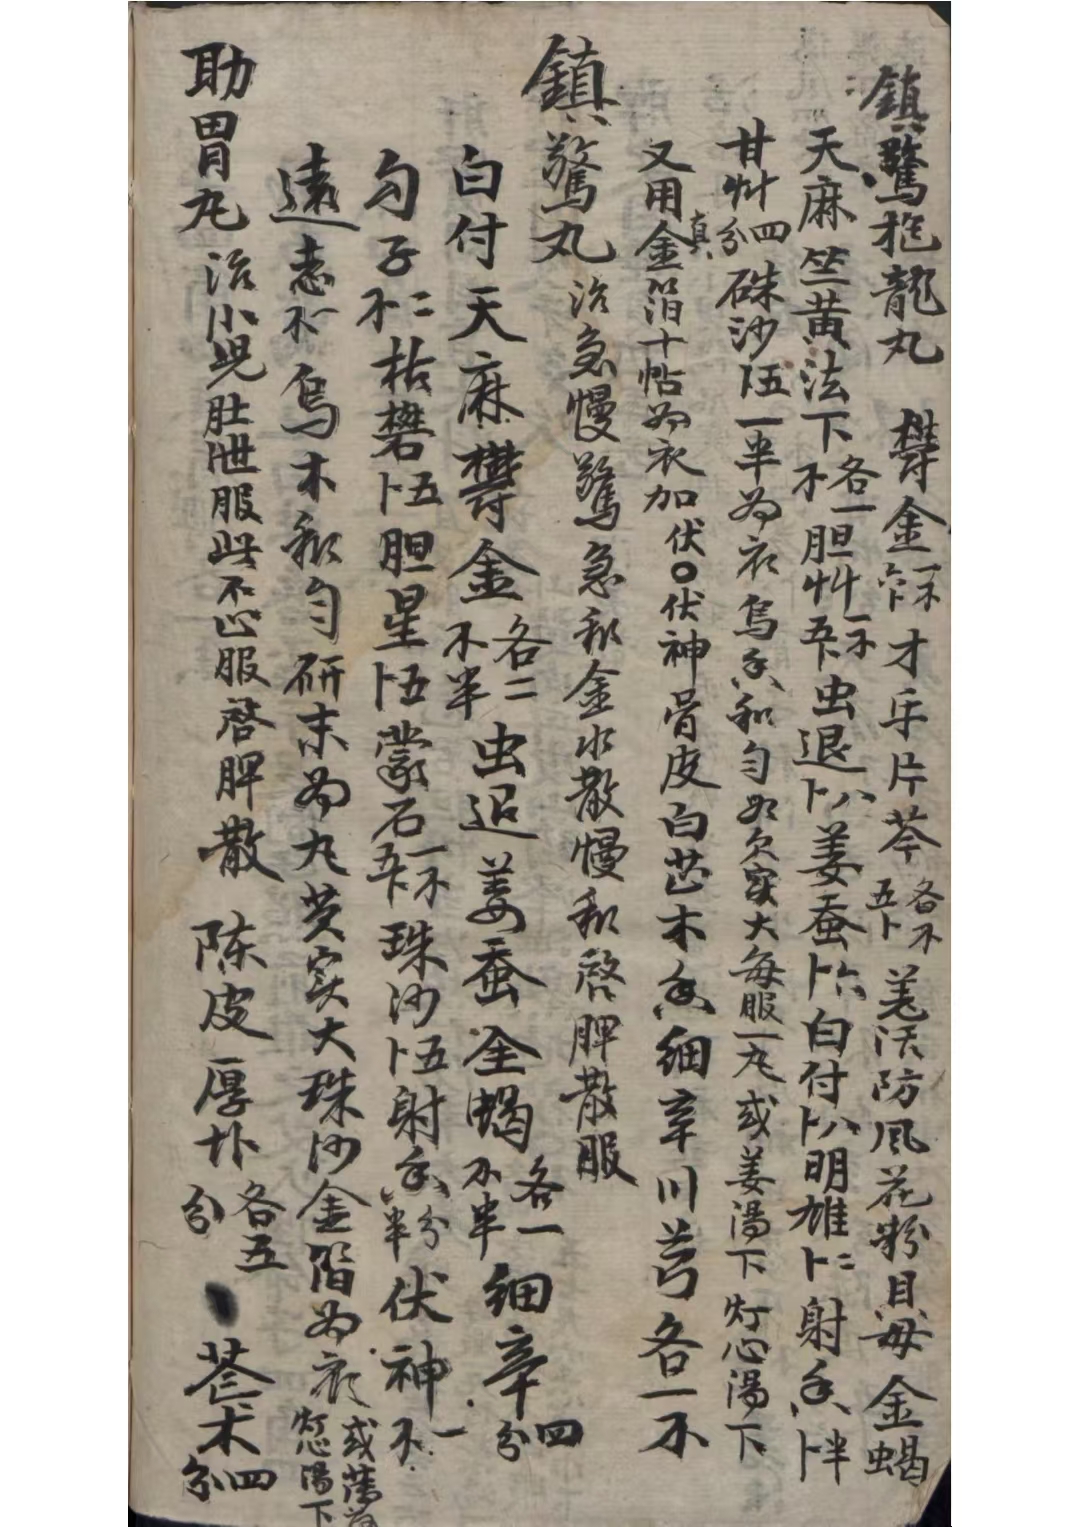 鎮驚抱龍丸 欝金一不六卜 才乎片芩各不五卜 羌活防風花粉貝母金蝎
天麻竺黃法下各一不胆艸一不五卜虫退卜八姜蚕卜六白付卜八明雄卜二射香卜半
甘艸四分硃沙卜五一半為衣烏香和勻如欠實大每服一丸或姜湯下灯心湯下
又用真金箔十帖為衣加伏〇伏神骨皮白芷木香細辛川芎各一不
鎮驚丸 治急慢驚急和金水散慢和啓脾散服
白付天麻欝金各二不半虫退姜蚕全蝎各一不半細辛四分
勾子二不枯礬卜五胆星卜五蒙石一不五卜珠沙卜五射香半分伏神一不
遠志一不烏木和勻研末為丸芡實大珠沙金箔為衣或薄荷灯心湯下
助胃丸 治小児肚泄服此不止服啓脾散 陳皮厚朴各五分 蒼术四分